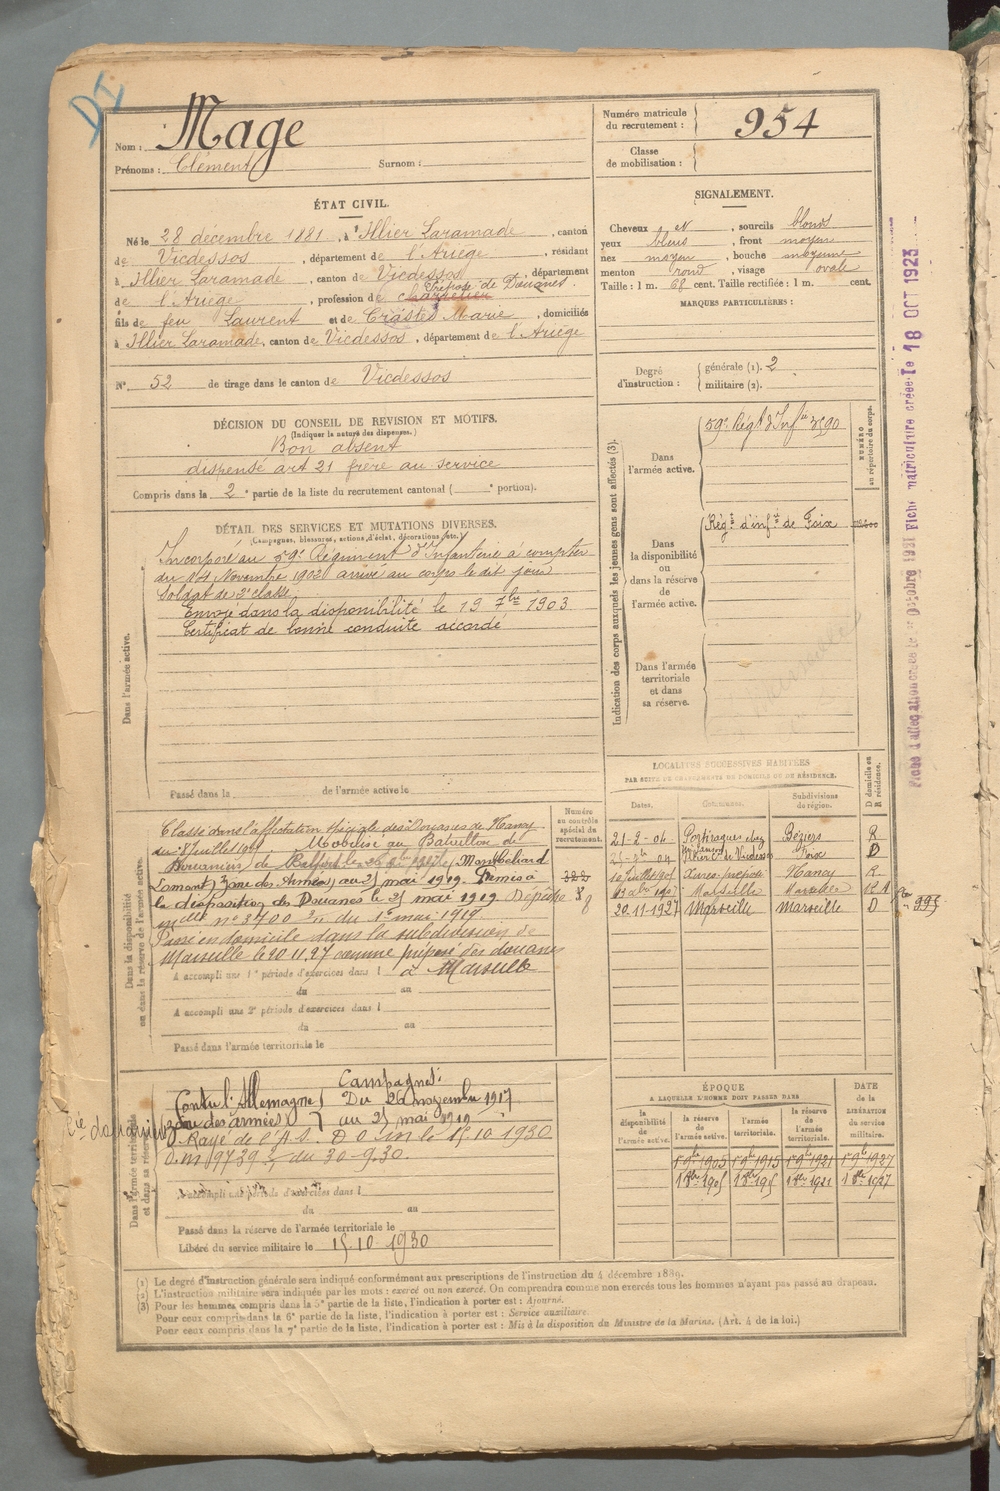 DI
Nom : Mage
Prénoms : Clément Surnom :
Numéro matricule du recrutement : 954
Classe de mobilisation :
ÉTAT CIVIL.
Né le 28 décembre 1881, à Illier Laramade, canton
de Vicdessos, département de l'Ariège, résidant
à Illier Laramade, canton de Vicdessos, département
de l'Ariège, profession de Préposé de Douanes.
fils de feu Laurent et de Crastes Marie, domiciliés
à Illier Laramade, canton de Vicdessos, département de l'Ariège
N° 52 de tirage dans le canton de Vicdessos
SIGNALEMENT.
Cheveux N, sourcils blonds
yeux bleus, front moyen
nez moyen, bouche moyenne
menton rond, visage ovale
Taille : 1 m. 68 cent. Taille rectifiée : 1 m. cent.
MARQUES PARTICULIÈRES :
Degré d'instruction : générale (1). 2
militaire (2).
DÉCISION DU CONSEIL DE REVISION ET MOTIFS.
(Indiquer la nature des dispenses.)
Bon absent
dispensé art 21 frère au service
Compris dans la 2e partie de la liste du recrutement cantonal ( e portion).
DÉTAIL DES SERVICES ET MUTATIONS DIVERSES.
(Campagnes, blessures, actions d'éclat, décorations, etc.)
Dans l'armée active.
Incorporé au 59e Régiment d'Infanterie à compter
du 14 Novembre 1902 arrivé au corps le dit jour
Soldat de 2e classe
Envoyé dans la disponibilité le 19 7bre 1903
Certificat de bonne conduite accordé
Passé dans la de l'armée active le
Indication des corps auxquels les jeunes gens sont affectés (3).
NUMÉRO au répertoire du corps.
Dans l'armée active.
59e Régt d'Infie 3590
Dans la disponibilité ou dans la réserve de l'armée active.
Régt d'infie de Foix
Dans l'armée territoriale et dans sa réserve.
LOCALITÉS SUCCESSIVES HABITÉES
PAR SUITE DE CHANGEMENTS DE DOMICILE OU DE RÉSIDENCE.
Dates. Communes. Subdivisions de région. D domicile ou R résidence.
21-2-04 Portiragnes chez Béziers R
Illier Ct de Vicdessos Foix D
Nancy R
Marseille Marseille
20.11-1927 Marseille Marseille D
995
Numéro au contrôle spécial du recrutement.
Dans la disponibilité ou dans la réserve de l'armée active.
Classé dans l'affectation spéciale des Douanes de Nancy
Mobilisé au Bataillon de
Douaniers de Montbéliard
Lomont, Zone des Armées, au 25 mai 1919. Remis à
la disposition des Douanes le 25 mai 1919. Dépêche
melle n° 3700 du 1er mai 1919
Passé en domicile dans la subdivision de
Marseille le 20.11.27 comme préposé des douanes
à Marseille
A accompli une 1re période d'exercices dans l
du au
A accompli une 2e période d'exercices dans l
du au
Passé dans l'armée territoriale le
Dans l'armée territoriale et dans sa réserve.
Campagnes :
Contre l'Allemagne Du 26 novembre 1917
(zone des armées) au 25 mai 1919
Rayé de l'A.S. le 15.10.1930
D.m 9739 du 30-9.30.
A accompli une période d'exercices dans l
du au
Passé dans la réserve de l'armée territoriale le
Libéré du service militaire le 15.10.1930
ÉPOQUE
A LAQUELLE L'HOMME DOIT PASSER DANS
la disponibilité de l'armée active. la réserve de l'armée active. l'armée territoriale. la réserve de l'armée territoriale. DATE de la LIBÉRATION du service militaire.
1er 9bre 1905 1er 9bre 1915 1er 9bre 1921 1er 9bre 1927
1er 8bre 1905 1er 8bre 1915 1er 8bre 1921 1er 8bre 1927
(1) Le degré d'instruction générale sera indiqué conformément aux prescriptions de l'instruction du 4 décembre 1889.
(2) L'instruction militaire sera indiquée par les mots : exercé ou non exercé. On comprendra comme non exercés tous les hommes n'ayant pas passé au drapeau.
(3) Pour les hommes compris dans la 5e partie de la liste, l'indication à porter est : Ajourné.
Pour ceux compris dans la 6e partie de la liste, l'indication à porter est : Service auxiliaire.
Pour ceux compris dans la 7e partie de la liste, l'indication à porter est : Mis à la disposition du Ministre de la Marine. (Art. 4 de la loi.)
Fiche matriculaire créée le 18 OCT 1923